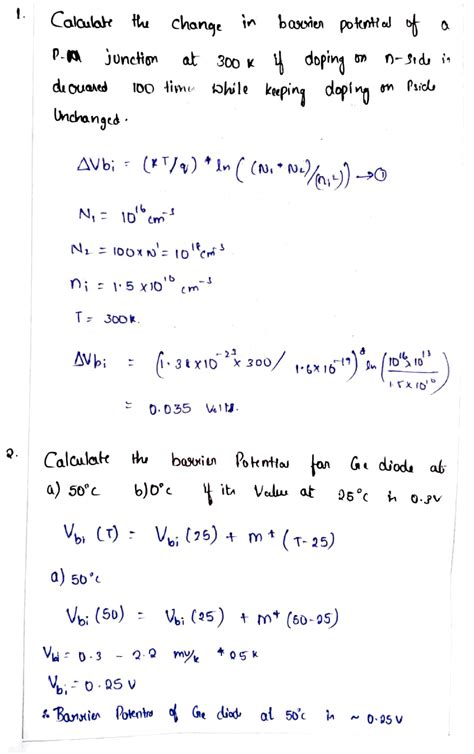 1. Calculate the change in barrier potential of a
P-n junction at 300 K if doping on n-side is
decreased 100 time while keeping doping on Pside
Unchanged.
ΔVbi = (KT/q) * ln ((N₁ * N₂)/(ni²)) → ①
N₁ = 10¹⁶ cm⁻³
N₂ = 100 x N' = 10¹⁸ cm⁻³
ni = 1.5 x 10¹⁰ cm⁻³
T = 300 K.
ΔVbi = (1.38 x 10⁻²³ x 300 / 1.6 x 10⁻¹⁹) * ln (10¹⁶ x 10¹⁸ / 1.5 x 10¹⁰)
= 0.035 Volts.
2. Calculate the barrier Potential for Ge diode at
a) 50°c b) 0°c if its Value at 25°c is 0.3V
Vbi (T) = Vbi (25) + m * (T-25)
a) 50°c
Vbi (50) = Vbi (25) + m * (50-25)
Vbi = 0.3 - 2.2 mv/k * 25 k
Vbi = 0.25 V
∴ Barrier Potential of Ge diode at 50°c is ~ 0.25V